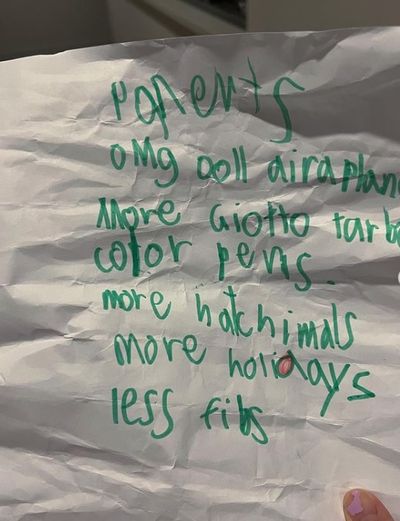 Parents
OMG Doll airaplan
More Giotto turb
color pens.
more hatchimals
more holidays
less fibs